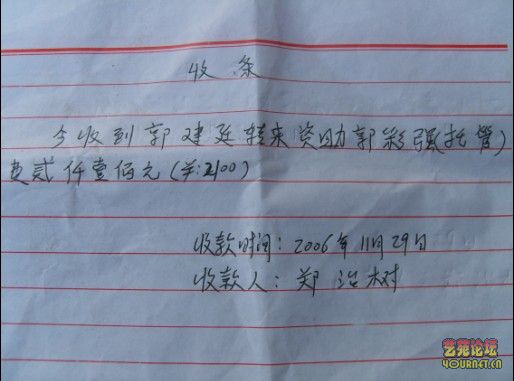 收条
今收到郭建廷转来资助郭彩强(托管)
费贰仟壹佰元(羊:2100)
收款时间:2006年11月29日
收款人:郑治树
艺苑论坛
4OURNET.CN